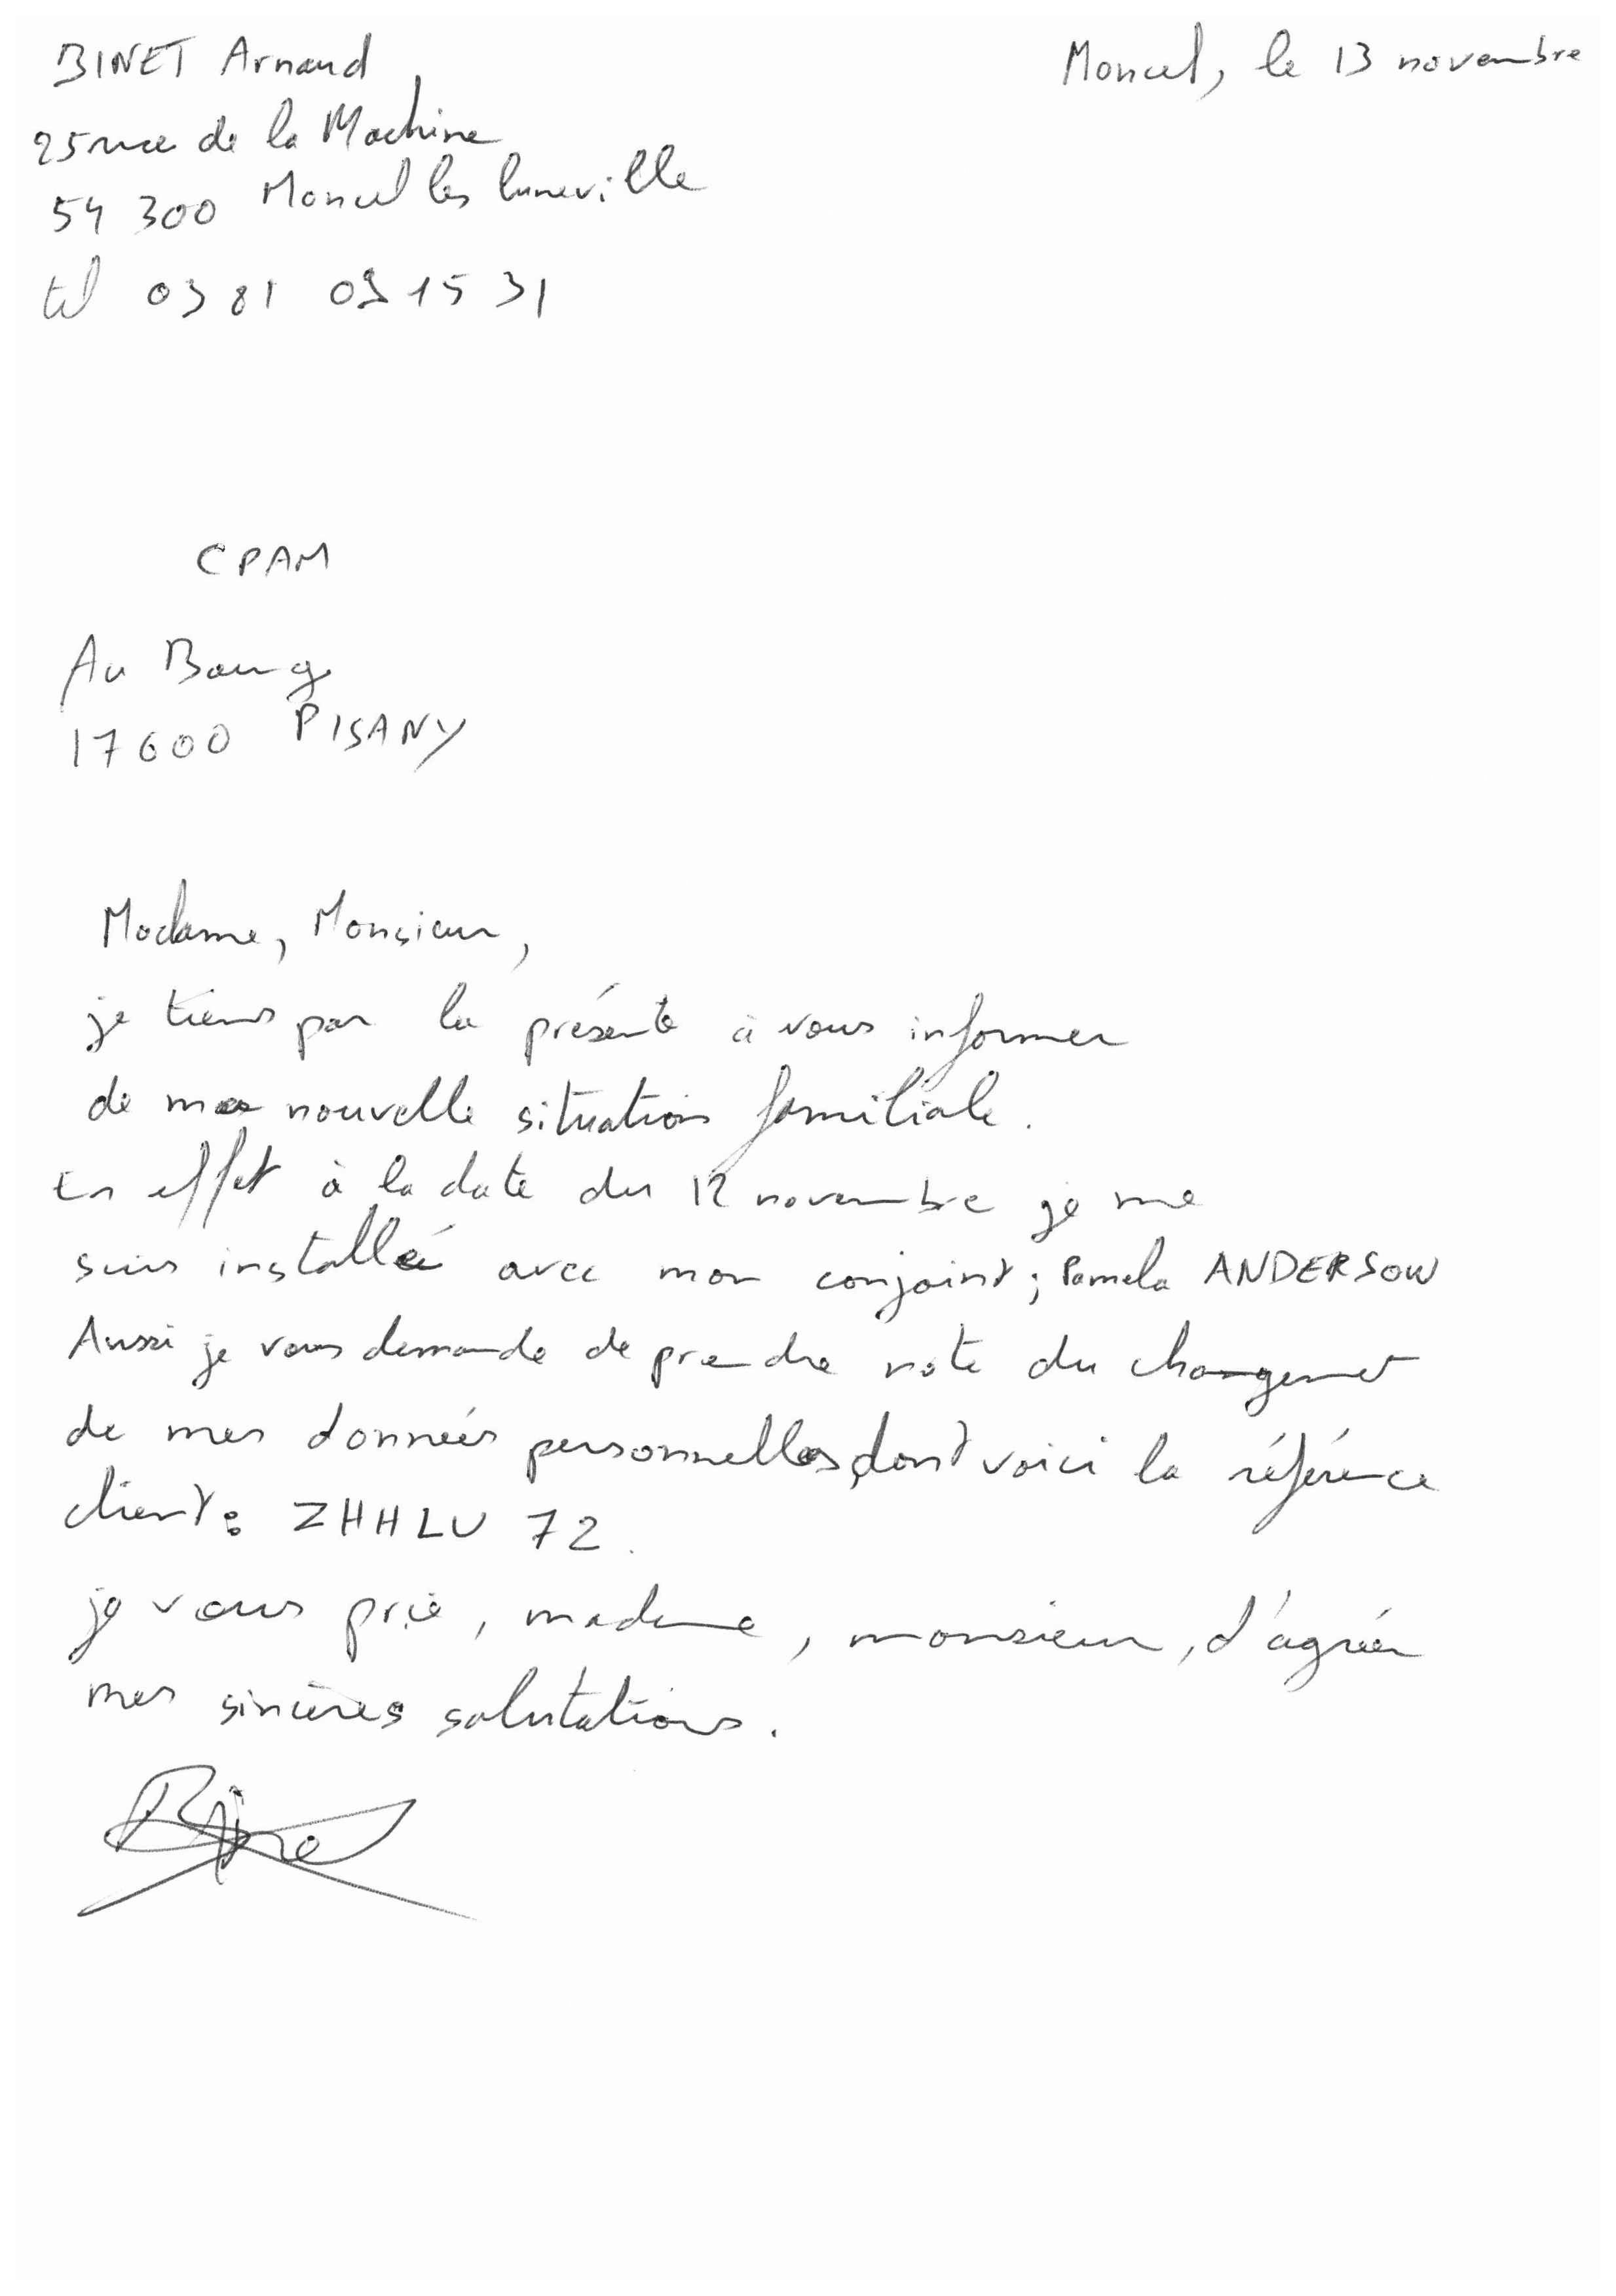 BINET Arnaud
Moncel, le 13 novembre
25 rue de la Machine
54 300 Moncel les luneville
tel 03 81 09 15 31
CPAM
Au Bourg
17600 PISANY
Madame, Monsieur,
je tiens par la présente à vous informer
de ma nouvelle situation familiale.
En effet à la date du 12 novembre je me
suis installé avec mon conjoint; Pamela ANDERSON
Aussi je vous demande de prendre note du changement
de mes données personnelles, dont voici la référence
client: ZHHLU 72.
je vous prie, madame, monsieur, d'agréer
mes sincères salutations.
Binet